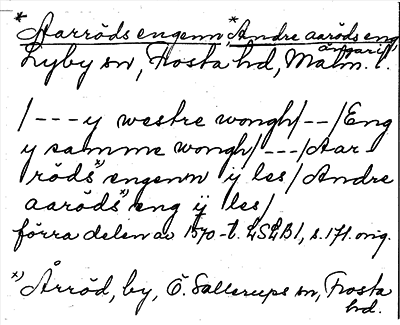 *Aarröds engenn, *Andre aaröds eng
Lyby sn, Frosta hd, Malm. l.
/---y westre wongh/--/Eng
y samme wongh/---/Aar
röds*) engenn ÿ les/Andre
aaröds*) eng ÿ les/
förra delen av 1570-t. LSLB1, s. 171. orig.
*) Årröd, by, Ö. Sallerups sn, Frosta
hd.